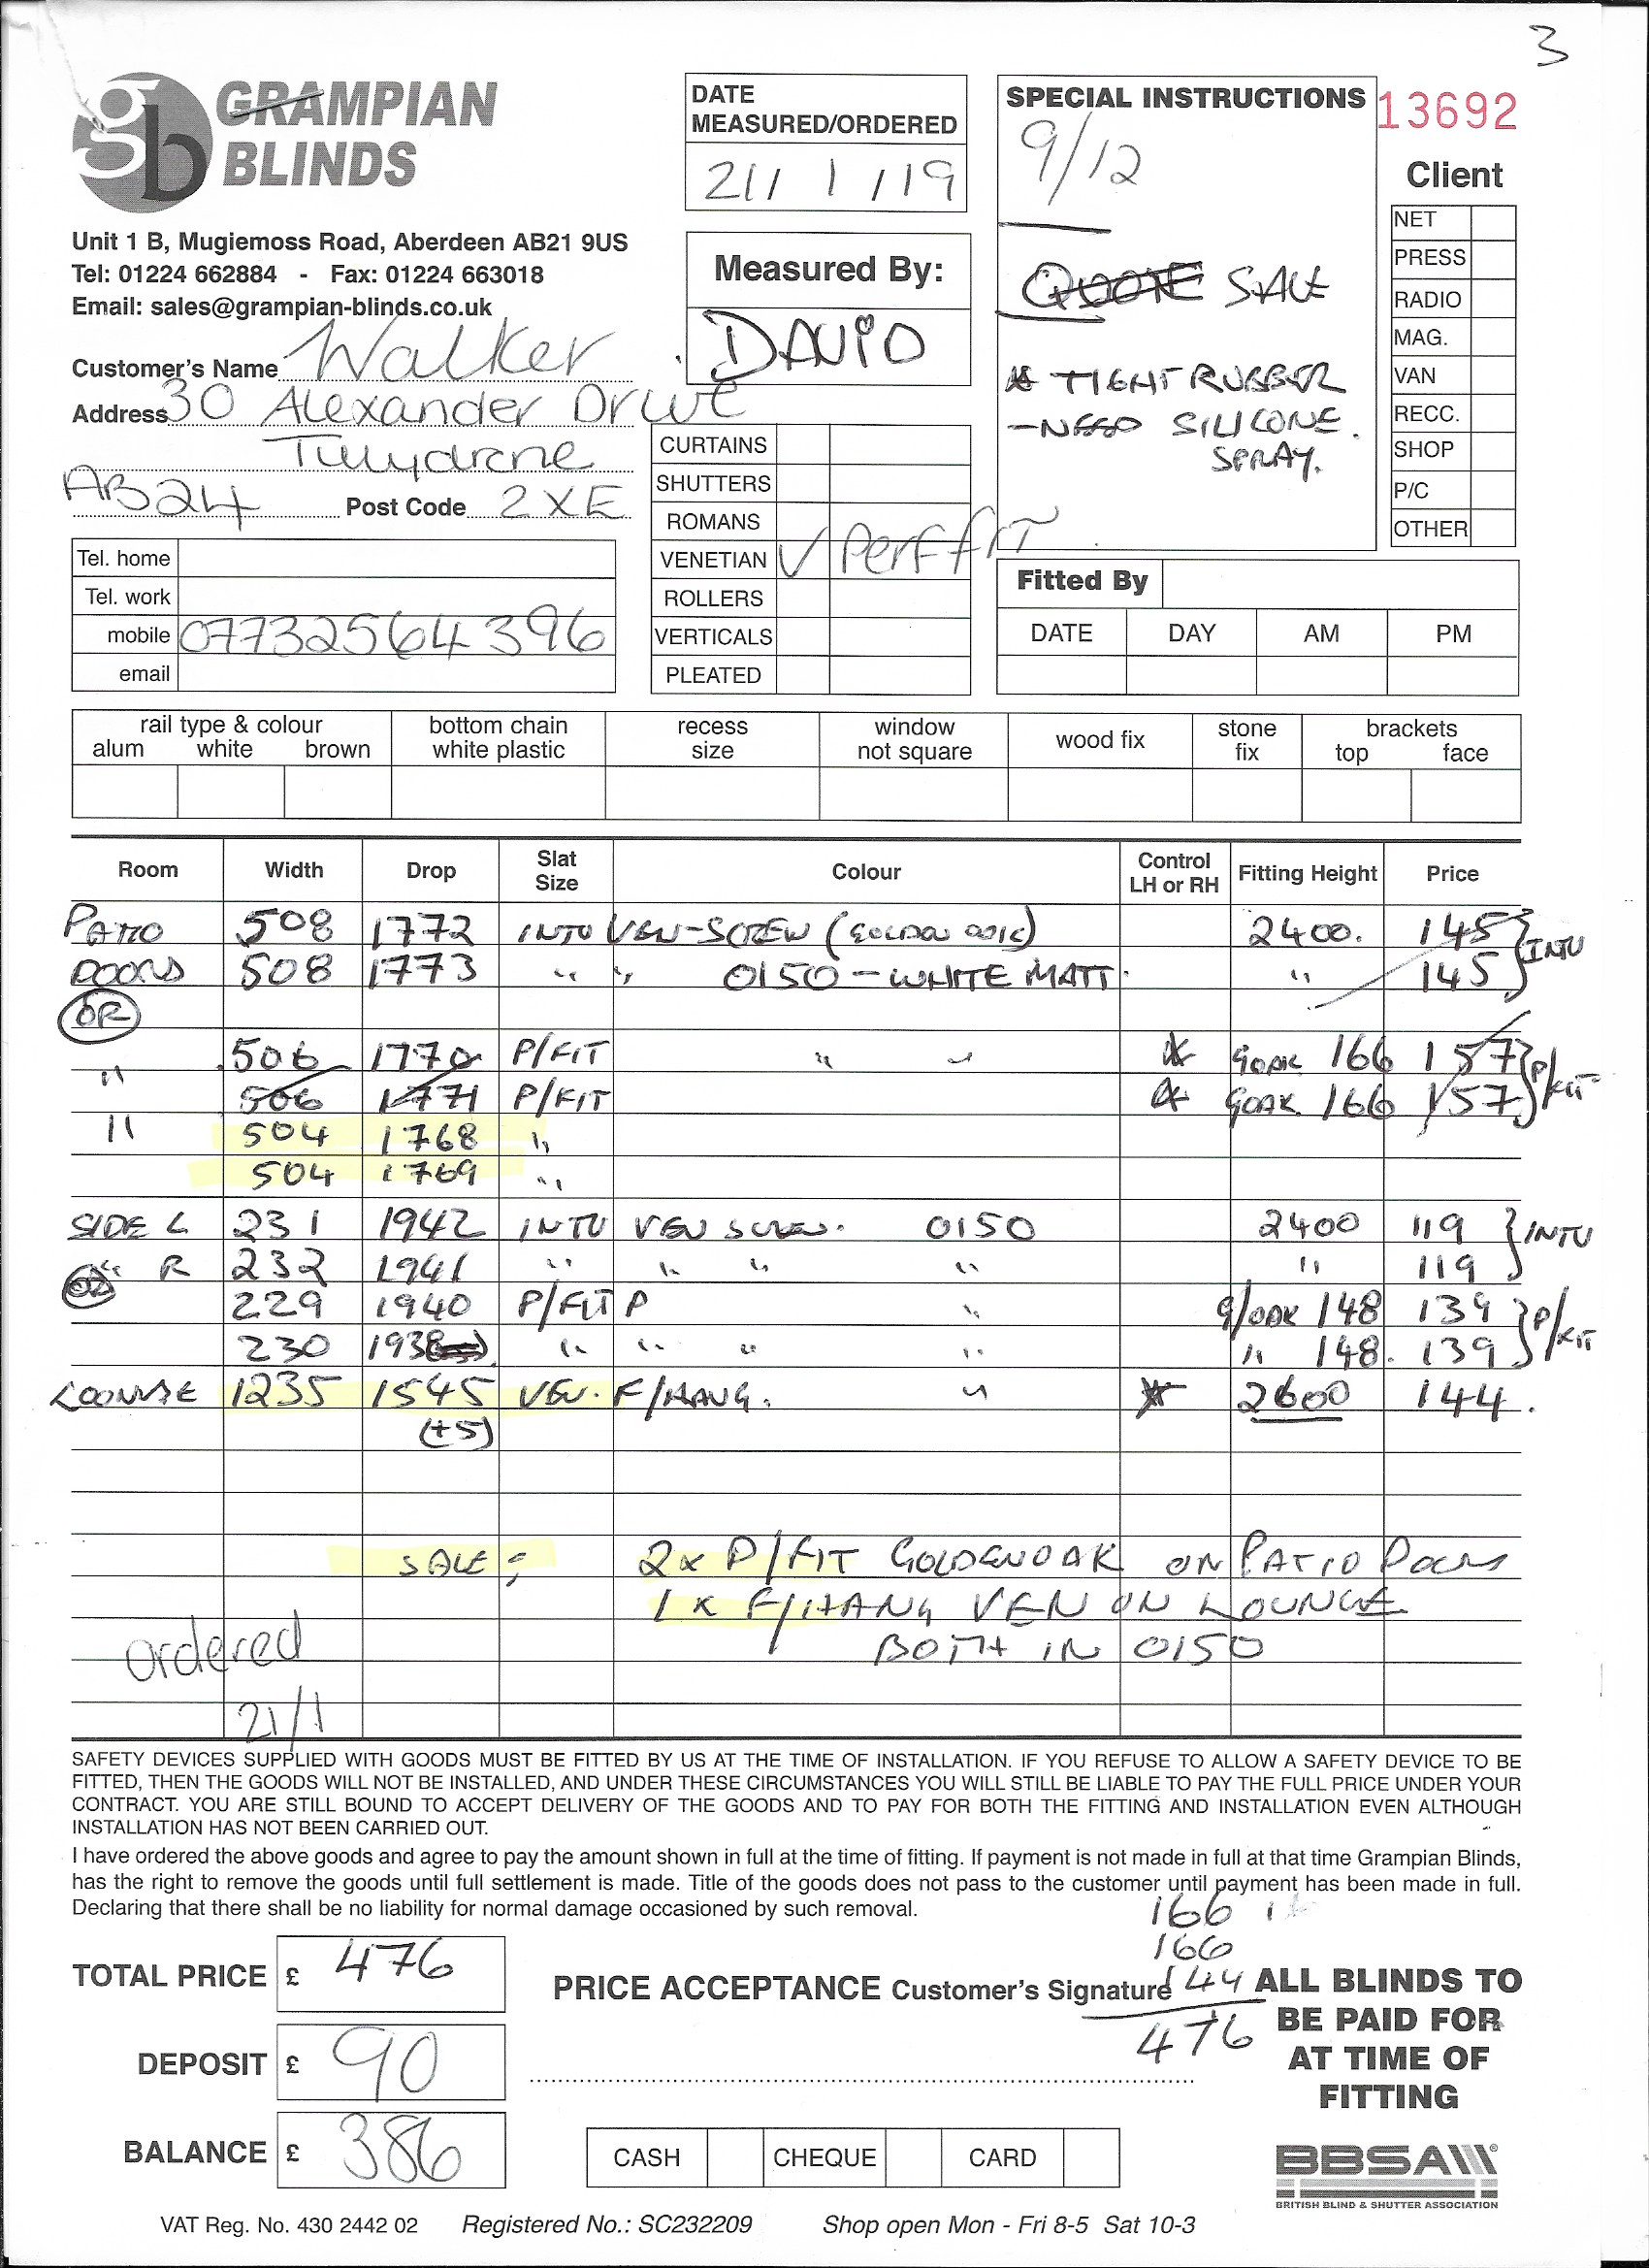 3
GRAMPIAN
BLINDS
Unit 1 B, Mugiemoss Road, Aberdeen AB21 9US
Tel: 01224 662884 - Fax: 01224 663018
Email: sales@grampian-blinds.co.uk
Customer's Name Walker
Address 30 Alexander Drive
Tillydrone
AB24 Post Code 2XE
Tel. home
Tel. work
mobile 07732564396
email
DATE
MEASURED/ORDERED
21/ 1 /19
Measured By:
DAVID
CURTAINS
SHUTTERS
ROMANS
VENETIAN ✓ Perffit
ROLLERS
VERTICALS
PLEATED
SPECIAL INSTRUCTIONS
9/12
QUOTE SALE
* TIGHT RUBBER
- NEED SILICONE.
SPRAY.
13692
Client
NET
PRESS
RADIO
MAG.
VAN
RECC.
SHOP
P/C
OTHER
Fitted By
DATE DAY AM PM
rail type & colour bottom chain recess window wood fix stone brackets
alum white brown white plastic size not square fix top face
Room Width Drop Slat Size Colour Control LH or RH Fitting Height Price
PATIO 508 1772 INTU VEN-SCREW (GOLDEN OAK) 2400. 145 } INTU
DOORS 508 1773 " " 0150 - WHITE MATT. " 145
OR
" 506 1770 P/FIT " " * GOAK 166 157 } P/FIT
506 1771 P/FIT * GOAK 166 157
" 504 1768 "
504 1769 "
SIDE L 231 1942 INTU VEN SCREW. 0150 2400 119 } INTU
" R 232 1941 " " " " " 119
OR 229 1940 P/FIT P " G/OAK 148 139 } P/FIT
230 1938 " " " " " 148. 139
LOUNGE 1235 1545 VEN. F/HANG. " * 2600 144.
(+5)
SALE; 2x P/FIT GOLDENOAK ON PATIO DOORS
1 x F/HANG VEN ON LOUNGE
BOTH IN 0150
ordered
21/1
SAFETY DEVICES SUPPLIED WITH GOODS MUST BE FITTED BY US AT THE TIME OF INSTALLATION. IF YOU REFUSE TO ALLOW A SAFETY DEVICE TO BE
FITTED, THEN THE GOODS WILL NOT BE INSTALLED, AND UNDER THESE CIRCUMSTANCES YOU WILL STILL BE LIABLE TO PAY THE FULL PRICE UNDER YOUR
CONTRACT. YOU ARE STILL BOUND TO ACCEPT DELIVERY OF THE GOODS AND TO PAY FOR BOTH THE FITTING AND INSTALLATION EVEN ALTHOUGH
INSTALLATION HAS NOT BEEN CARRIED OUT.
I have ordered the above goods and agree to pay the amount shown in full at the time of fitting. If payment is not made in full at that time Grampian Blinds,
has the right to remove the goods until full settlement is made. Title of the goods does not pass to the customer until payment has been made in full.
Declaring that there shall be no liability for normal damage occasioned by such removal.
166
166
144
476
TOTAL PRICE £ 476
DEPOSIT £ 90
BALANCE £ 386
PRICE ACCEPTANCE Customer's Signature
ALL BLINDS TO
BE PAID FOR
AT TIME OF
FITTING
CASH CHEQUE CARD
BBSA
BRITISH BLIND & SHUTTER ASSOCIATION
VAT Reg. No. 430 2442 02 Registered No.: SC232209 Shop open Mon - Fri 8-5 Sat 10-3